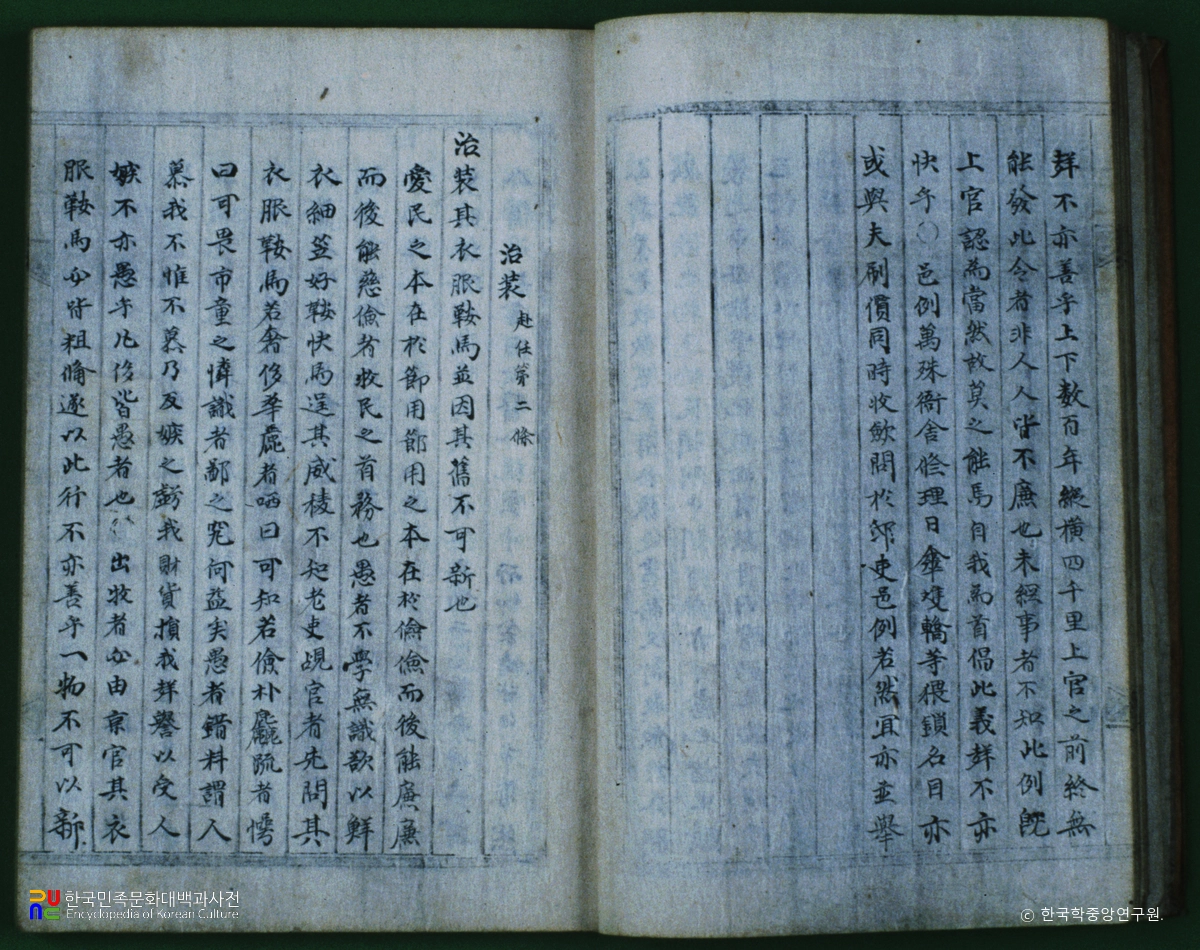 鮮不亦善乎上下數百年縱橫四千里上官之前終無
能發此令者非人人皆不廉也未經事者不知此例旣
上官認為當然故莫之能焉自我為首倡此義鮮不亦
快乎〇邑例萬殊衙舍修理日傘雙轎等猥鎖名目亦
或與夫刷價同時收斂問於邸吏邑例若然宜亦並擧
治装 赴任第二條
治装其衣服鞍馬並因其舊不可新也
愛民之本在於節用節用之本在於儉儉而後能廉廉
而後能慈儉者牧民之首務也愚者不學無識欲以鮮
衣細笠好鞍快馬逞其威稜不知老吏覘官者先問其
衣服鞍馬若奢侈華麗者哂曰可知若儉朴麤疏者愕
曰可畏市童之憐識者鄙之究何益矣愚者錯料謂人
慕我不惟不慕乃反嫉之虧我財貨損我鮮譽以受人
嫉不亦愚乎凡侈皆愚者也 出牧者必由京官其衣
服鞍馬必皆粗備遂以此行不亦善乎一物不可以新
한국민족문화대백과사전
Encyclopedia of Korean Culture
© 한국학중앙연구원.